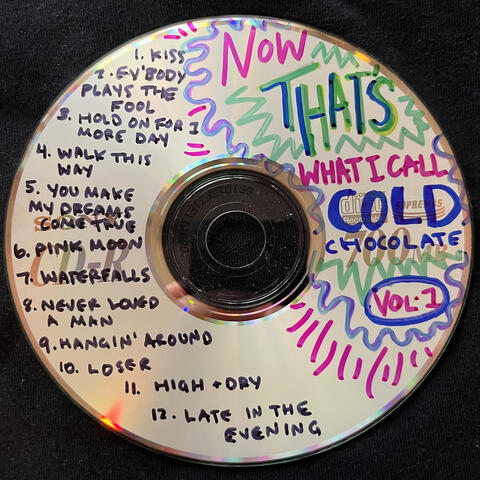 1. KISS
2. EV'BODY
PLAYS THE
FOOL
3. HOLD ON FOR 1
MORE DAY
4. WALK THIS
WAY
5. YOU MAKE
MY DREAMS
COME TRUE
6. PINK MOON
7. WATERFALLS
8. NEVER LOVED
A MAN
9. HANGIN' AROUND
10. LOSER
11. HIGH + DRY
12. LATE IN THE
EVENING
NOW
THAT'S
WHAT I CALL
COLD
CHOCOLATE
VOL. 1
SUPREMAS
CD-R
700